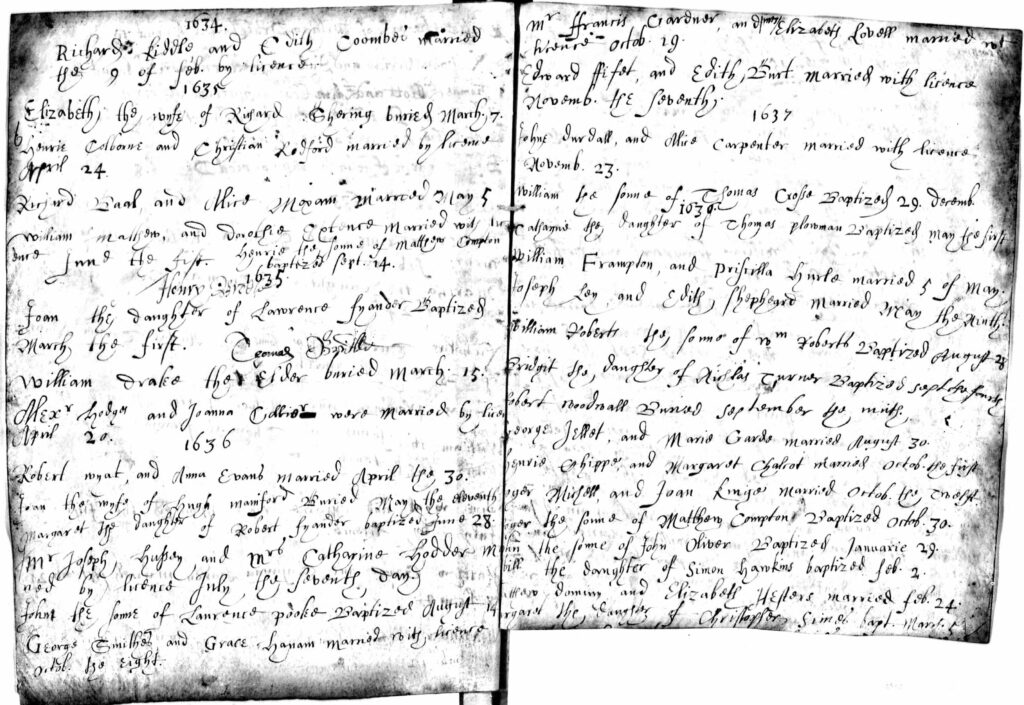 1634.
Richard Kiddle and Edith Coombes married
the 9 of feb. by licence.
1635
Elizabeth, the wife of Richard Shering buried March. 7.
Henrie Colborne and Christian Rodford married by licence
April 24.
Richard Baal, and Alice Moxam Married May 5
William Matthew, and Dorothie married with lic
ence June the first. Henrie the sonne of Matthew Compton
baptized sept. 14.
1635
Henry
Joan the daughter of Lawrence fyander Baptized
March the first. Thomas
William Drake the Elder buried March. 15.
Alexr Hodges and Joanna Collier were Married by lice
April 20.
1636
Robert wyat, and Anna Evans married April the 30.
Joan the wife of Hugh manford Buried May the eleventh
Margaret the daughter of Robert fyander baptized June 28.
Mr Joseph, Hussey, and Mrs Catharine Hodder Ma
ried by licence July, the seventh day.
John the sonne of Laurence pooke Baptized August 14
George Smithes, and Grace Hanam married with licence
Octob. the eight.
Mr ffrancis Gardner, and Elizabeth Lovell married wt
licence Octob. 19.
Edward ffifet, and Edith, Burt. married with licence
Novemb. the seventh,
1637
Johne durdall, and Alice Carpenter married with licence
Novemb. 23.
William the sonne of Thomas Crose Baptized 29. decemb.
1639.
the daughter of Thomas plowman Baptized may the first
William Frampton, and Priscilla Hurle married 5 of May.
Joseph Ley, and Edith, shepheard married May the Ninth.
William Roberts the, sonne of Wm Roberts Baptized August 28
Bridgit the, daughter of Nicolas Turner Baptized sept the fourth
Robert woodwall Buried september the ninth,
George Jellet, and Marie Garde married August 30.
Henrie Chippe, and Margaret Chalcot married Octob. the first
oger Misell, and Joan Kinge married Octob. the Twelft
oger the sonne of Matthew Compton Baptized Octob. 30.
the sonne of John Oliver Baptized Januarie 29.
the daughter of Simon Hawkins baptized feb. 2.
and Elizabeth Hesters married feb. 24.
rgaret the, daughter of Christopher Simes bapt. March 5